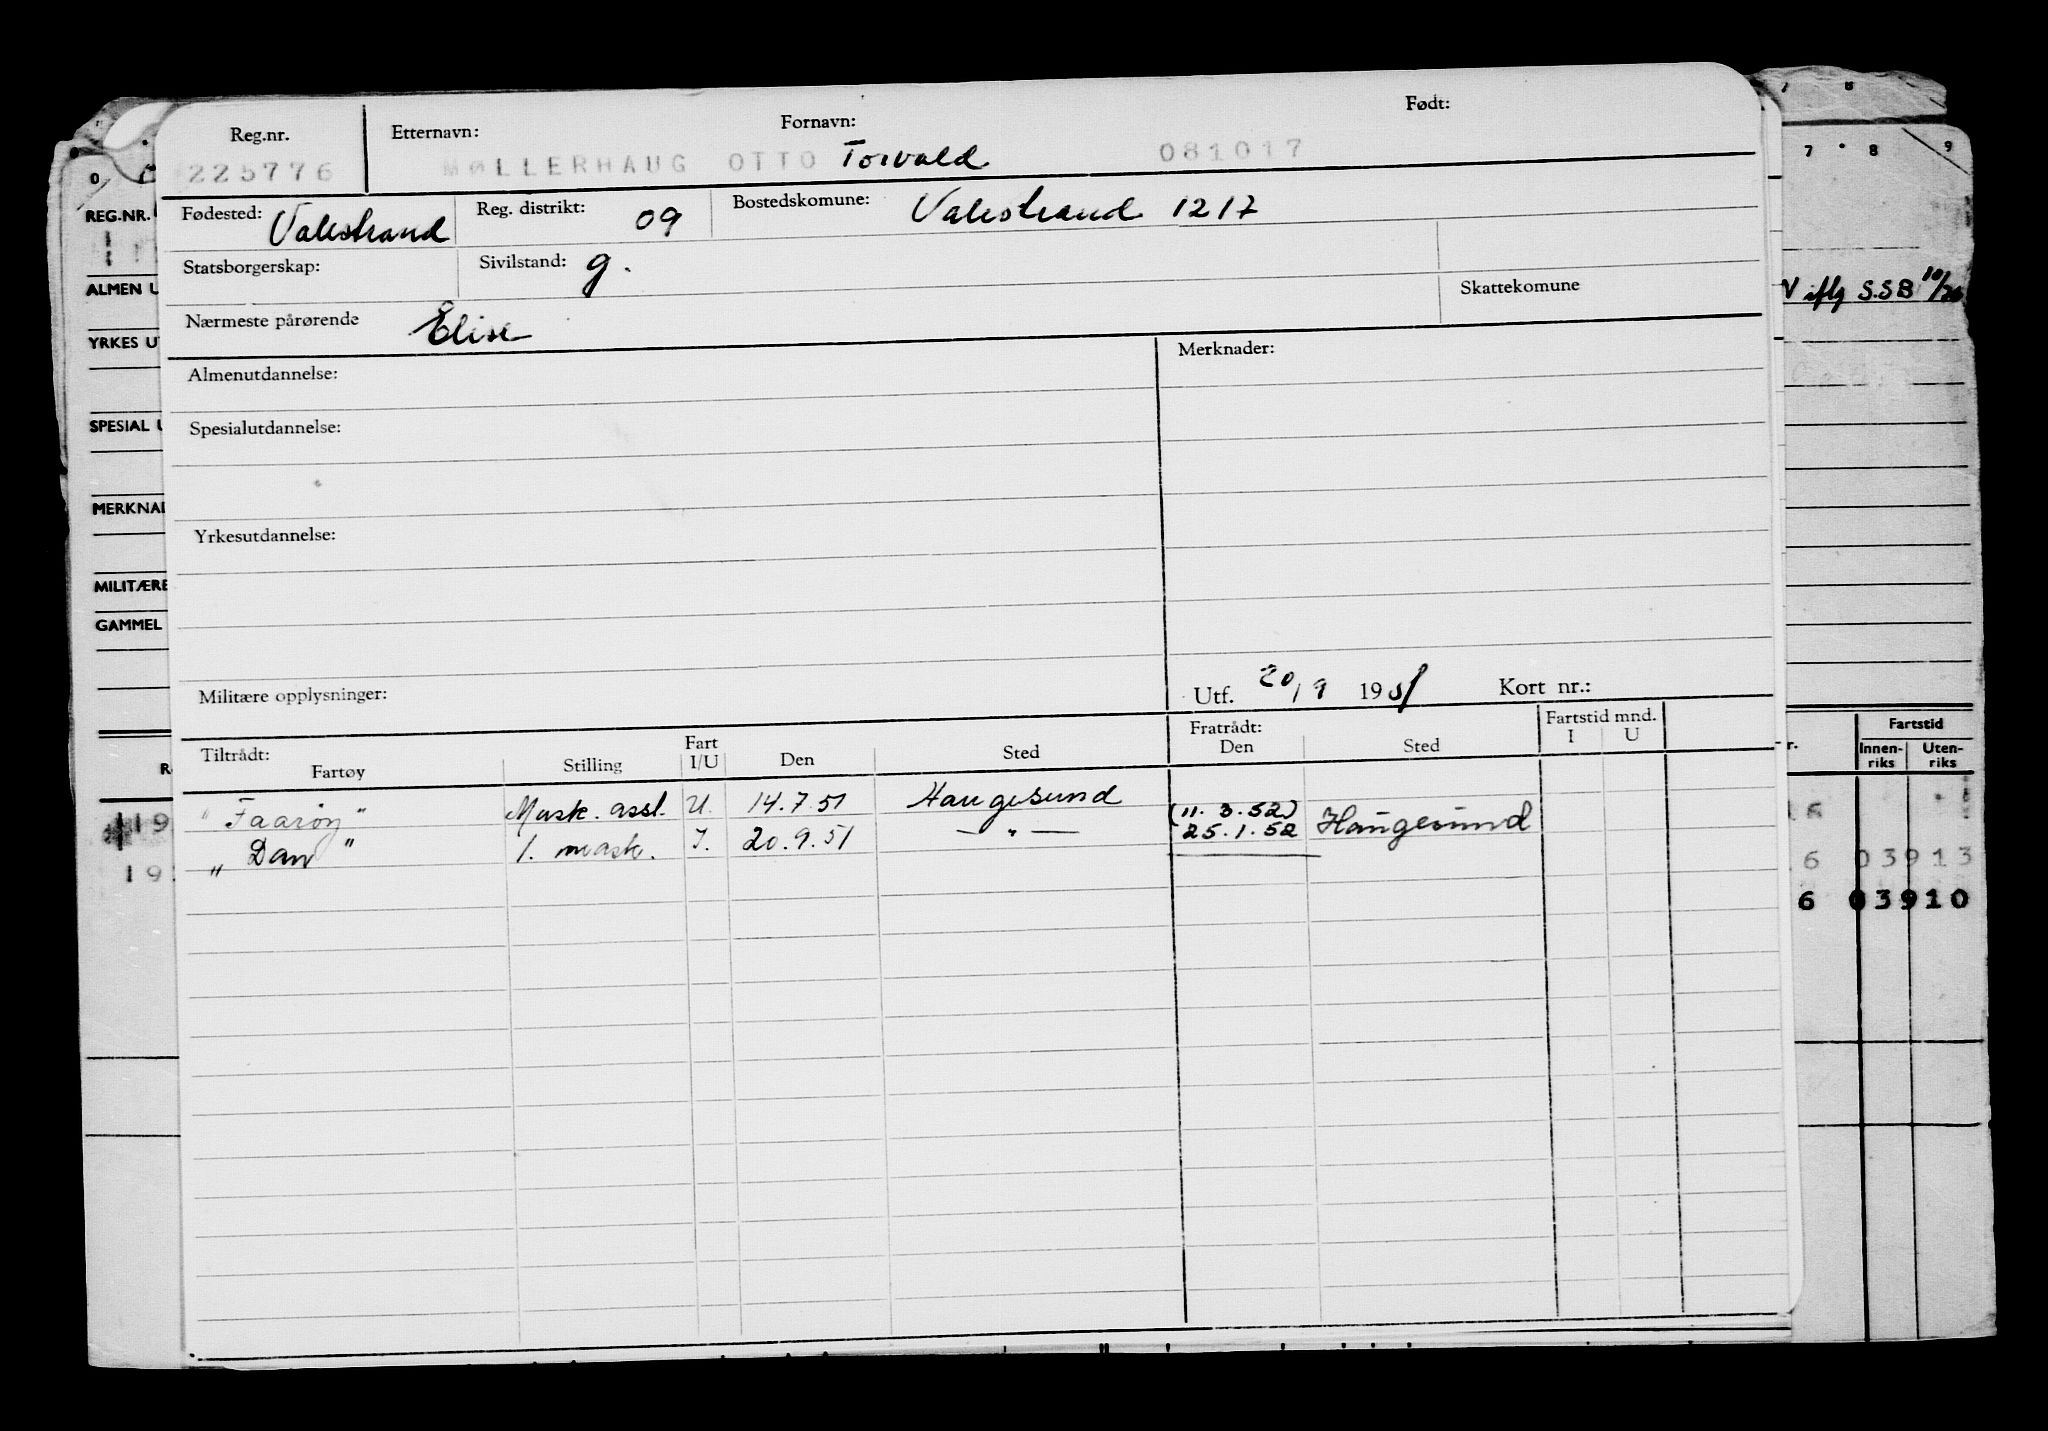 Reg.nr. Etternavn: Fornavn: Født:
225776 MØLLERHAUG OTTO Torvald 081017
Fødested: Valestrand Reg. distrikt: 09 Bostedskomune: Valestrand 1217
Statsborgerskap: Sivilstand: g. Skattekomune
Nærmeste pårørende Elise
Almenutdannelse: Merknader:
Spesialutdannelse:
Yrkesutdannelse:
Militære opplysninger: Utf. 20/9 1951 Kort nr.:
Tiltrådt: Fratrådt: Fartstid mnd.
Fartøy Stilling Fart I/U Den Sted Den Sted I U
"Faarøy" Mask. asst. U. 14.7.51 Haugesund (11.3.52)
"Dan" 1. mask. I. 20.9.51 — " — 25.1.52 Haugesund
0
REG.NR.
ALMEN U
YRKES UT
SPESIAL U
MERKNAD
MILITÆRE
GAMMEL
R
19
19
7 8
7 8 9
V iflg S.S.B 10/
r. Fartstid
Innen-riks Uten-riks
6 03913
6 03910